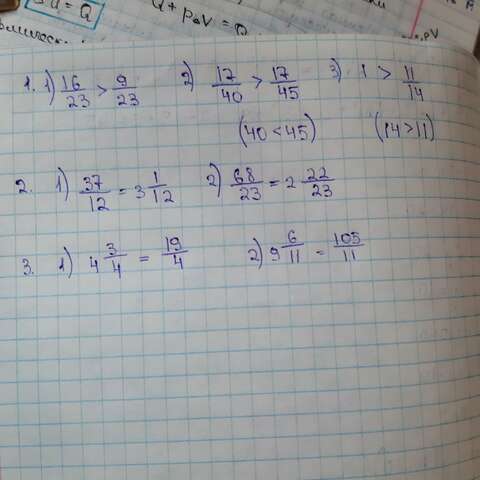 Q + PΔV = Q
1. 1) 16/23 > 9/23 2) 17/40 > 17/45 3) 1 > 11/14
(40 < 45) (14 > 11)
2. 1) 37/12 = 3 1/12 2) 68/23 = 2 22/23
3. 1) 4 3/4 = 19/4 2) 9 6/11 = 105/11